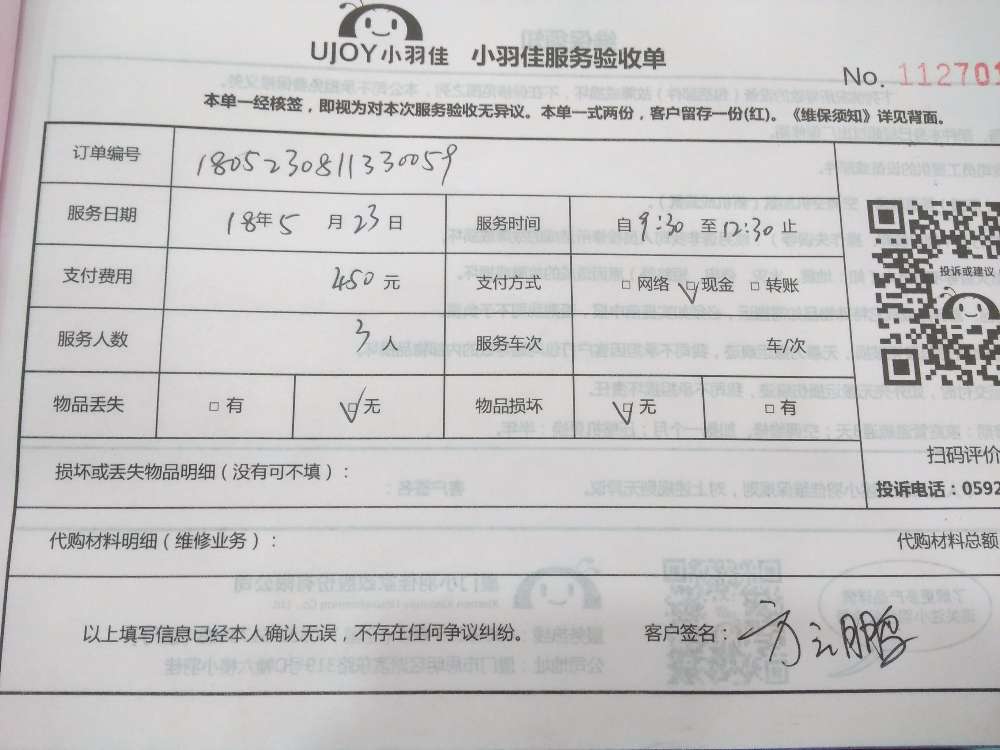 UJOY小羽佳 小羽佳服务验收单
No. 112701
本单一经核签，即视为对本次服务验收无异议。本单一式两份，客户留存一份(红)。《维保须知》详见背面。
订单编号 1805230811330059
服务日期 18年5月23日 服务时间 自9:30至12:30止
投诉或建议
支付费用 450元 支付方式 □网络 ☑现金 □转账
服务人数 3人 服务车次 车/次
物品丢失 □有 ☑无 物品损坏 ☑无 □有
扫码评价
损坏或丢失物品明细（没有可不填）：
投诉电话：0592
代购材料明细（维修业务）： 代购材料总额
以上填写信息已经本人确认无误，不存在任何争议纠纷。 客户签名：